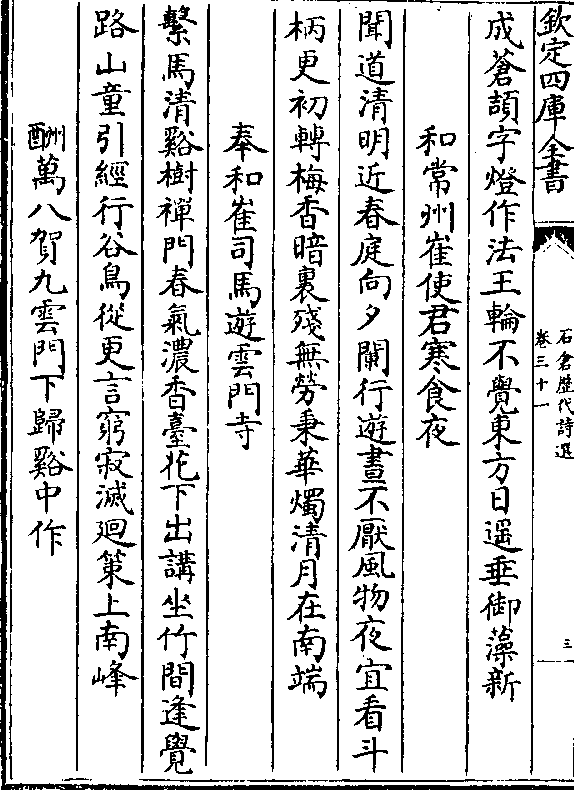 欽定四庫全書
石倉歷代詩選
卷三十一
三
成蒼頡字燈作法王輪不覺東方日遥垂御藻新
和常州崔使君寒食夜
聞道清明近春庭向夕闌行遊晝不厭風物夜宜看斗
柄更初轉梅香暗裏殘無勞秉華燭清月在南端
奉和崔司馬遊雲門寺
繫馬清谿樹禪門春氣濃香臺花下出講坐竹間逢覺
路山童引經行谷鳥從更言窮寂滅廻策上南峰
酬萬八賀九雲門下歸谿中作